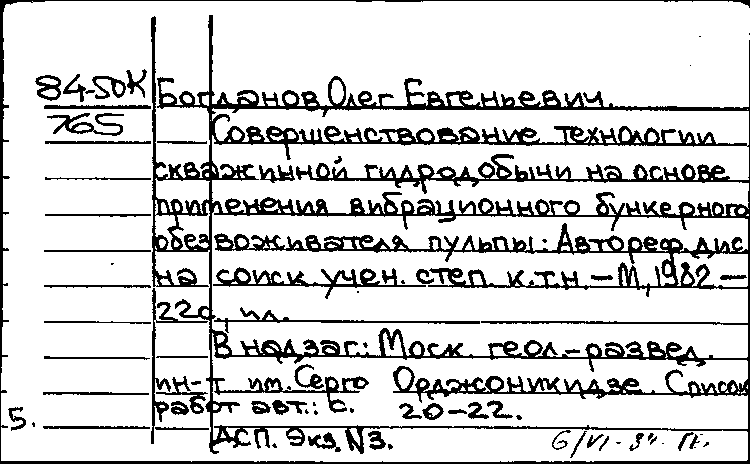 84-50К Богданов, Олег Евгеньевич.
765 Совершенствование технологии
скважинной гидродобычи на основе
применения вибрационного бункерного
обезвоживателя пульпы: Автореф. дис.
на соиск. учен. степ. к.т.н. – М., 1982 –
22с., ил.
В надзаг.: Моск. геол.-развед.
ин-т им. Серго Орджоникидзе. Список
работ авт.: с. 20-22.
5.
АСП. Экз. N3.